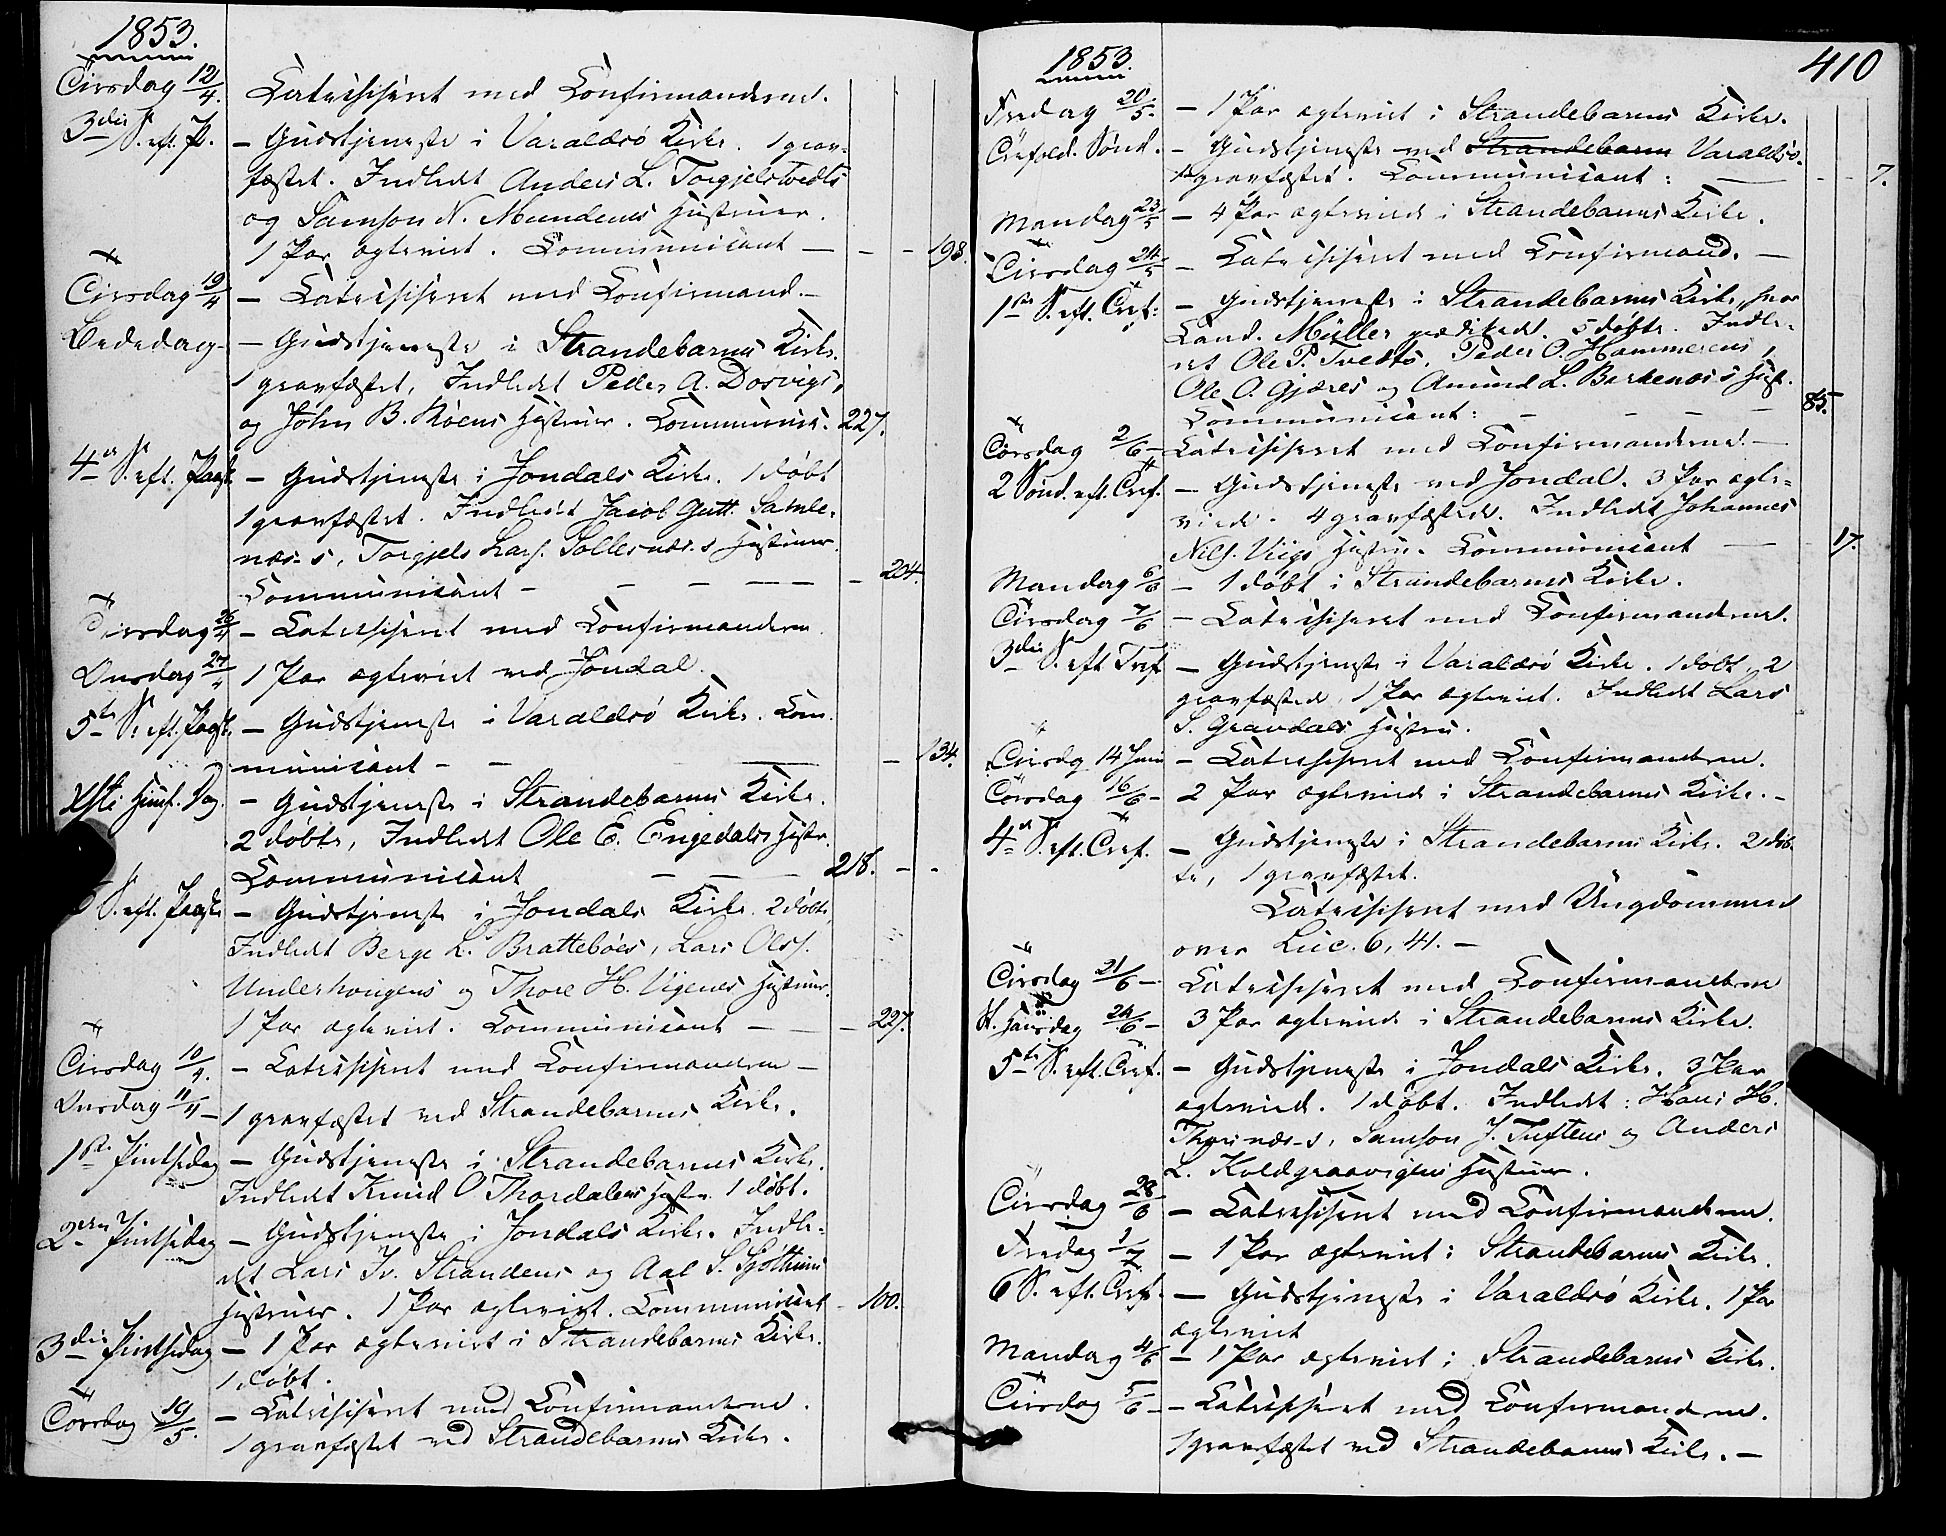 1853.
Tirsdag 12/4. Catechiseret med Confirmanderne.
3die S. eft. P. - Gudstjeneste i Varaldsø Kirke. 1 grav-
fæstet. Indledt Anders L. Torgjelstvedts
og Samson N. Mundenes Hustruer.
1 Par ægteviet. Communicant - - - 198.
Tirsdag 19/4 - Catechiseret med Confirmand. -
Bededag - Gudstjeneste i Strandebarms Kirke.
1 gravfæstet, Indledt Peder A. Dosvigs,
og John B. Moens Hustruer. Communik. 227.
4de S. eft. Paask. - Gudstjeneste i Jondals Kirke. 1 døbt
1 gravfæstet. Indledt Jacob Gutt. Samle-
næs-s, Torgjels Lars. Sollesnæs-s Hustruer.
Communicant - - - - - 204.
Tirsdag 26/4 - Catechiseret med Confirmandern.
Onsdag 27/4 1 Par ægteviet ved Jondal.
5te S. eft. Paask. - Gudstjeneste i Varaldsø Kirke. Com-
municant - - - 134.
Xsti Himf. Dag. - Gudstjeneste i Strandebarms Kirke.
2 døbte, Indledt Ole E. Engedals Hustr.
Communicant - - - 218. - -
S. eft. Paaske - Gudstjeneste i Jondals Kirke. 2 døbte,
Indledt Berge L. Brattebøes, Lars Ols.
Underhougens og Thore H. Vigenes Hustruer.
1 Par ægteviet. Communicant - - - 227.
Tirsdag 10/4. - Catechiseret med Confirmanderne -
Onsdag 11/4 - 1 gravfæstet ved Strandebarms Kirke.
1ste Pintsedag - Gudstjeneste i Strandebarms Kirke.
Indledt Knud O Thordalens Hustr. 1 døbt.
2den Pintsedag - Gudstjeneste i Jondals Kirke. Indle-
dt Lars Iv. Strandens og Aal S. Sjøthuns
Hustruer. 1 Par ægteviet. Communicant - 100.
3die Pintsedag - 1 Par ægteviet i Strandebarms Kirke.
1 døbt.
Torsdag 19/5. - Catechiseret med Confirmanderne.
1 gravfæstet ved Strandebarms Kirke.
1853. 410
Fredag 20/5. - 1 Par ægteviet i Strandebarms Kirke.
Trefold. Sønd. - Gudstjeneste ved Strandebarm Varaldsø.
gravfæstet. Communicant: - - - 7.
Mandag 23/5 - 4 Par ægteviede i Strandebarms Kirke.
Tirsdag 24/5 - Catechiseret med Confirmand. -
1ste S. eft. Tref: - Gudstjeneste i Strandebarms Kirke, hvor
Cand. Müller prædikede. 5 døbte. Indle-
et Ole P. Tvedts, Peder O. Hammerens,
Ole O. Gjæres og Amund L. Berkenæs-s Hust.
Communicant: - - - - 85.
Torsdag 2/6 - Catechiseret med Confirmanderne. -
2 Sønd. eft. Tref. - Gudstjeneste ved Jondal. 3 Par ægte-
viede. 4 gravfæstede. Indledt Johannes
Nils. Viigs Hustru. Communicant - - 17.
Mandag 6/6 - 1 døbt i Strandebarms Kirke.
Tirsdag 7/6 - Catechiseret med Confirmanderne.
3die S. eft Tref. - Gudstjeneste i Varaldsø Kirke. 1 døbt, 2
gravfæstede, 1 Par ægteviet. Indledt Lars
S. Gravdals Hustru.
Tirsdg 14 Juni - Catechiseret med Confirmanderne.
Torsdag 16/6 - 2 Par ægteviede i Strandebarms Kirke. -
4de S. eft. Tref. - Gudstjeneste i Strandebarms Kirke. 2 døb-
te, 1 gravfæstet.
Catechiseret med Ungdommen
over Luc. 6, 41. -
Tirsdag 21/6 - Catechiseret med Confirmanderne
St. Hansdag 24/6 - 3 Par ægteviede i Strandebarms Kirke.
5te S. eft. Tref. - Gudstjeneste i Jondals Kirke. 3 Par
ægteviede. 1 døbt. Indledt: Hans H.
Thorsnæs-s, Samson J. Tuftens og Anders
L. Koldgraavigens Hustruer.
Tirsdag 28/6 - Catechiseret med Confirmanderne.
Fredag 1/7. - 1 Par ægteviet i Strandebarms Kirke.
6 S. eft. Tref. - Gudstjeneste i Varaldsø Kirke. 1 Par
ægteviet
Mandag 4/6 - 1 Par ægteviet i Strandebarms Kirke.
Tirsdag 5/6 - - Catechiseret med Confirmanderne.
1 gravfæstet ved Strandebarms Kirke. -